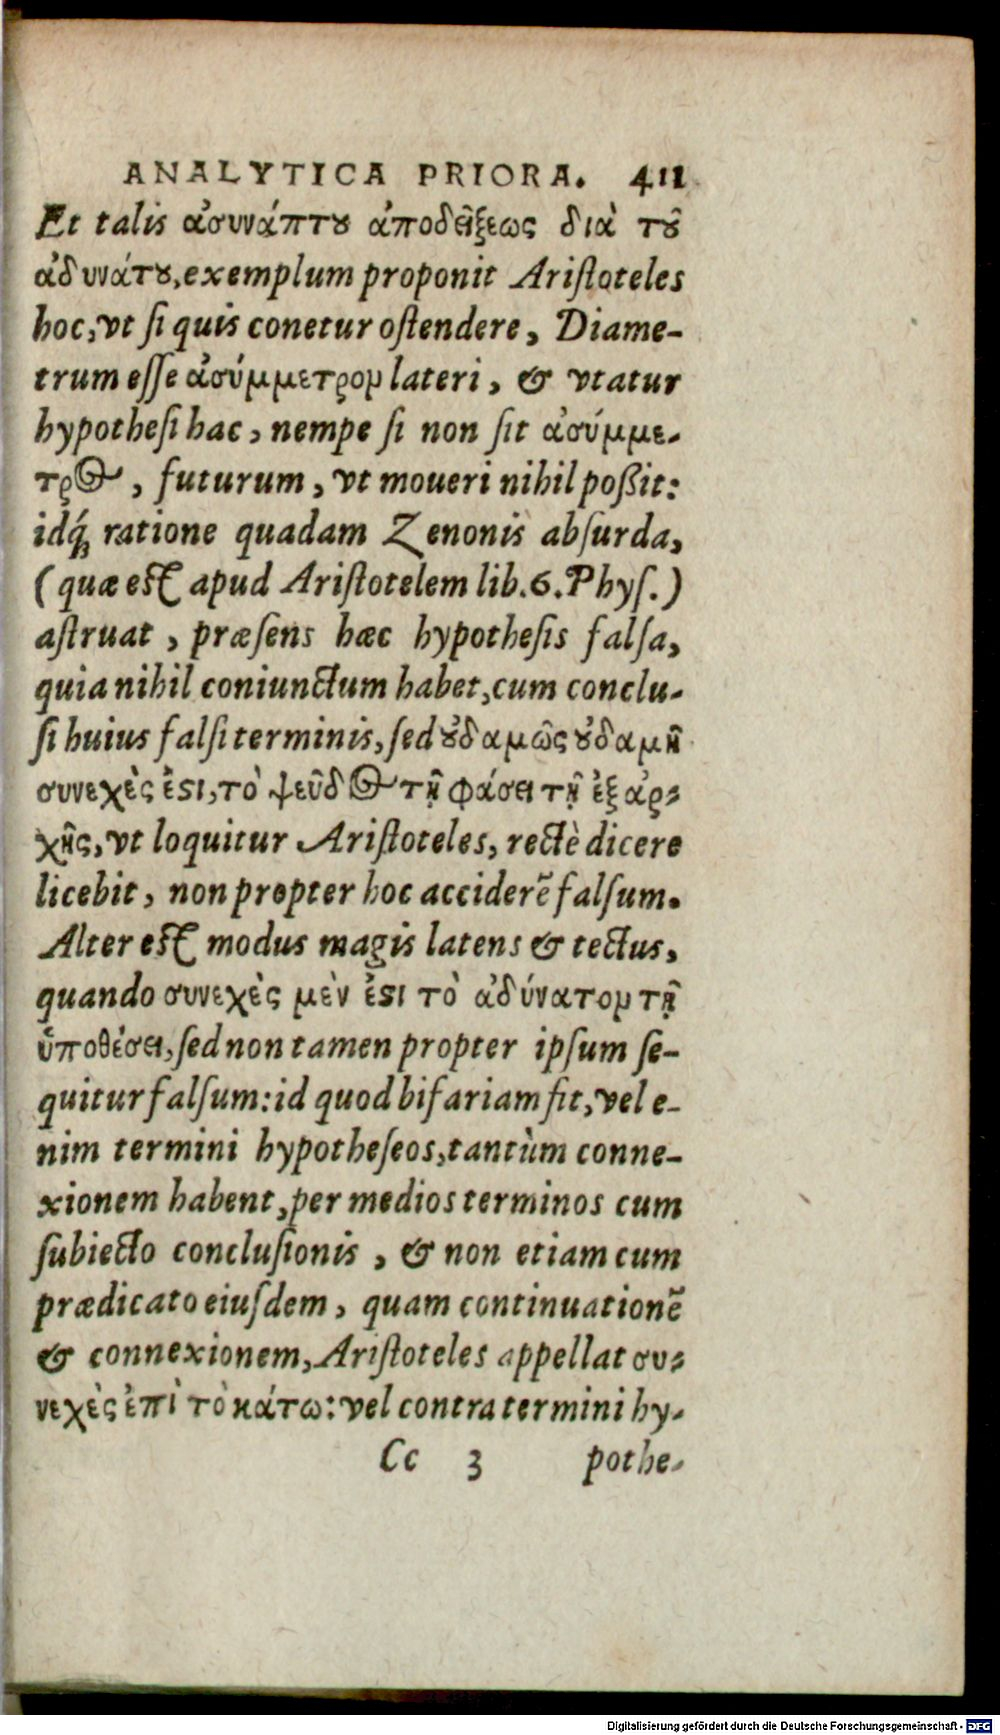 ANALYTICA PRIORA. 411
Et talis ἀσυνάπτȣ ἀποδείξεως διὰ τȣ͂
ἀδυνάτȣ, exemplum proponit Ariſtoteles
hoc, vt ſi quis conetur oſtendere, Diame-
trum eſſe ἀσύμμετρομ lateri, & vtatur
hypotheſi hac, nempe ſi non ſit ἀσύμμε-
τρος, futurum, vt moueri nihil poßit:
idq́; ratione quadam Zenonis abſurda,
(quæ eſt apud Ariſtotelem lib.6.Phyſ.)
aſtruat, præſens hæc hypotheſis falſa,
quia nihil coniunctum habet, cum conclu-
ſi huius falſi terminis, ſed ȣ̓δαμῶς ȣ̓δαμῆ
συνεχὲς ἐϛι, τὸ ψεῦδος τῇ φάσει τῇ ἐξ ἀρ-
χῆς, vt loquitur Ariſtoteles, rectè dicere
licebit, non propter hoc accidere᷉ falſum.
Alter eſt modus magis latens & tectus,
quando συνεχὲς μὲν ἐϛι τὸ ἀδύνατομ τῇ
ὑποθέσει, ſed non tamen propter ipſum ſe-
quitur falſum: id quod bifariam fit, vel e-
nim termini hypotheſeos, tantùm conne-
xionem habent, per medios terminos cum
ſubiecto concluſionis, & non etiam cum
prædicato eiuſdem, quam continuatione᷉
& connexionem, Ariſtoteles appellat συ-
νεχὲς ἐπὶ τὸ κάτω: vel contra termini hy-
Cc 3 pothe-
Digitalisierung gefördert durch die Deutsche Forschungsgemeinschaft - DFG